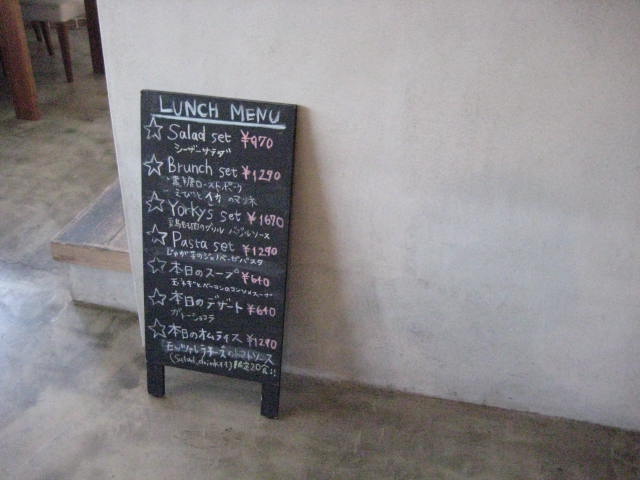 LUNCH MENU
☆ Salad set ¥970
シーザーサラダ
☆ Brunch set ¥1290
・黒糖ローストポーク
・えびとイカのマリネ
☆ Yorkys set ¥1670
鶏もも肉のグリル バジルソース
☆ Pasta set ¥1290
じゃが芋のジェノベーゼパスタ
☆ 本日のスープ ¥640
玉ネギとベーコンのコンソメスープ
☆ 本日のデザート ¥640
ガトーショコラ
☆ 本日のオムライス ¥1290
モッツァレラチーズのトマトソース
(Salad, drink付) 限定20食!!